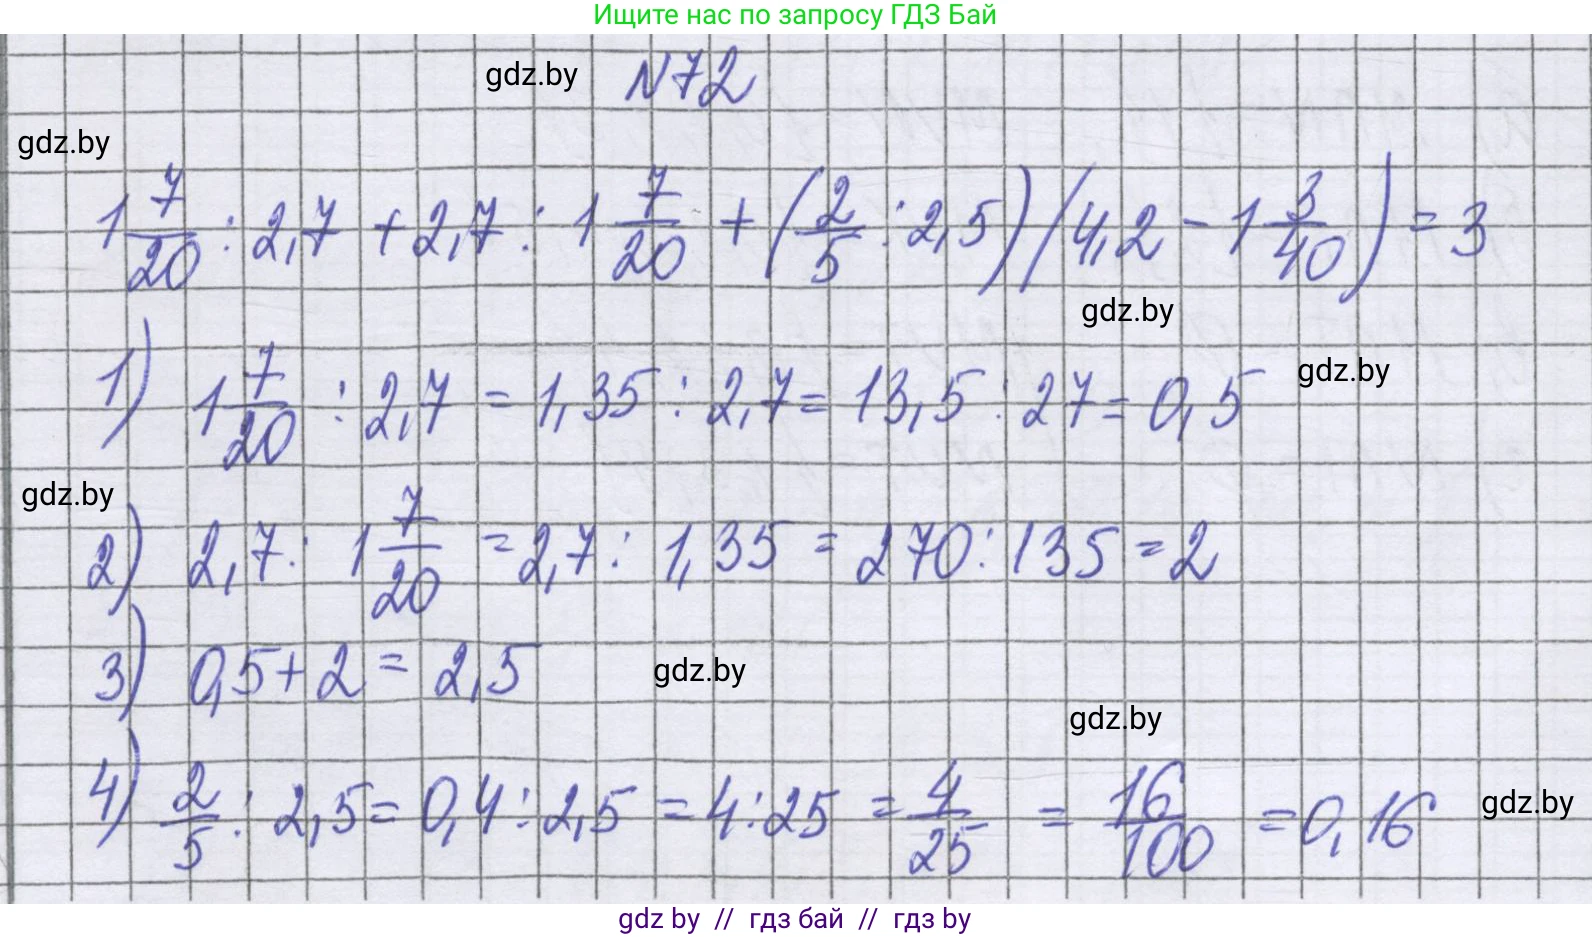 Ищите нас по запросу ГДЗ Бай
gdz.by №72
gdz.by
1 7/20 : 2,7 + 2,7 : 1 7/20 + (2/5 : 2,5)(4,2 - 1 3/40) = 3
gdz.by
1) 1 7/20 : 2,7 = 1,35 : 2,7 = 13,5 : 27 = 0,5 gdz.by
gdz.by
2) 2,7 : 1 7/20 = 2,7 : 1,35 = 270 : 135 = 2
3) 0,5 + 2 = 2,5 gdz.by
gdz.by
4) 2/5 : 2,5 = 0,4 : 2,5 = 4 : 25 = 4/25 = 16/100 = 0,16 gdz.by
gdz by // гдз бай // гдз by